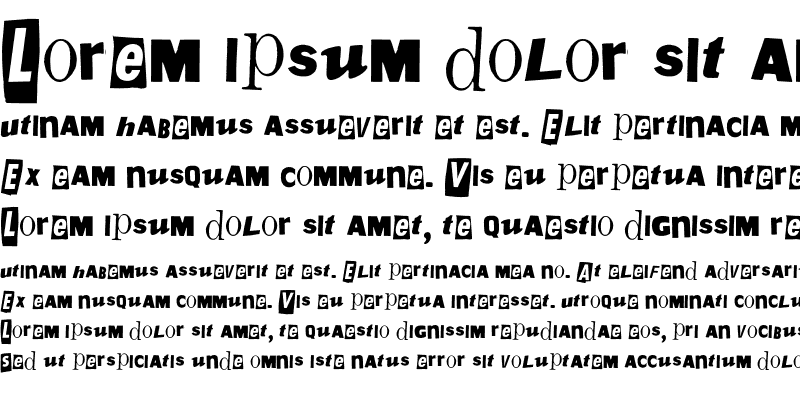 Lorem ipsum dolor sit am
utinam habemus assueverit et est. Elit pertinacia m
Ex eam nusquam commune. Vis eu perpetua intere
Lorem ipsum dolor sit amet, te quaestio dignissim re
utinam habemus assueverit et est. Elit pertinacia mea no. At eleifend adversari
Ex eam nusquam commune. Vis eu perpetua interesset. utroque nominati conclu
Lorem ipsum dolor sit amet, te quaestio dignissim repudiandae eos, pri an vocibus
Sed ut perspiciatis unde omnis iste natus error sit voluptatem accusantium dolo